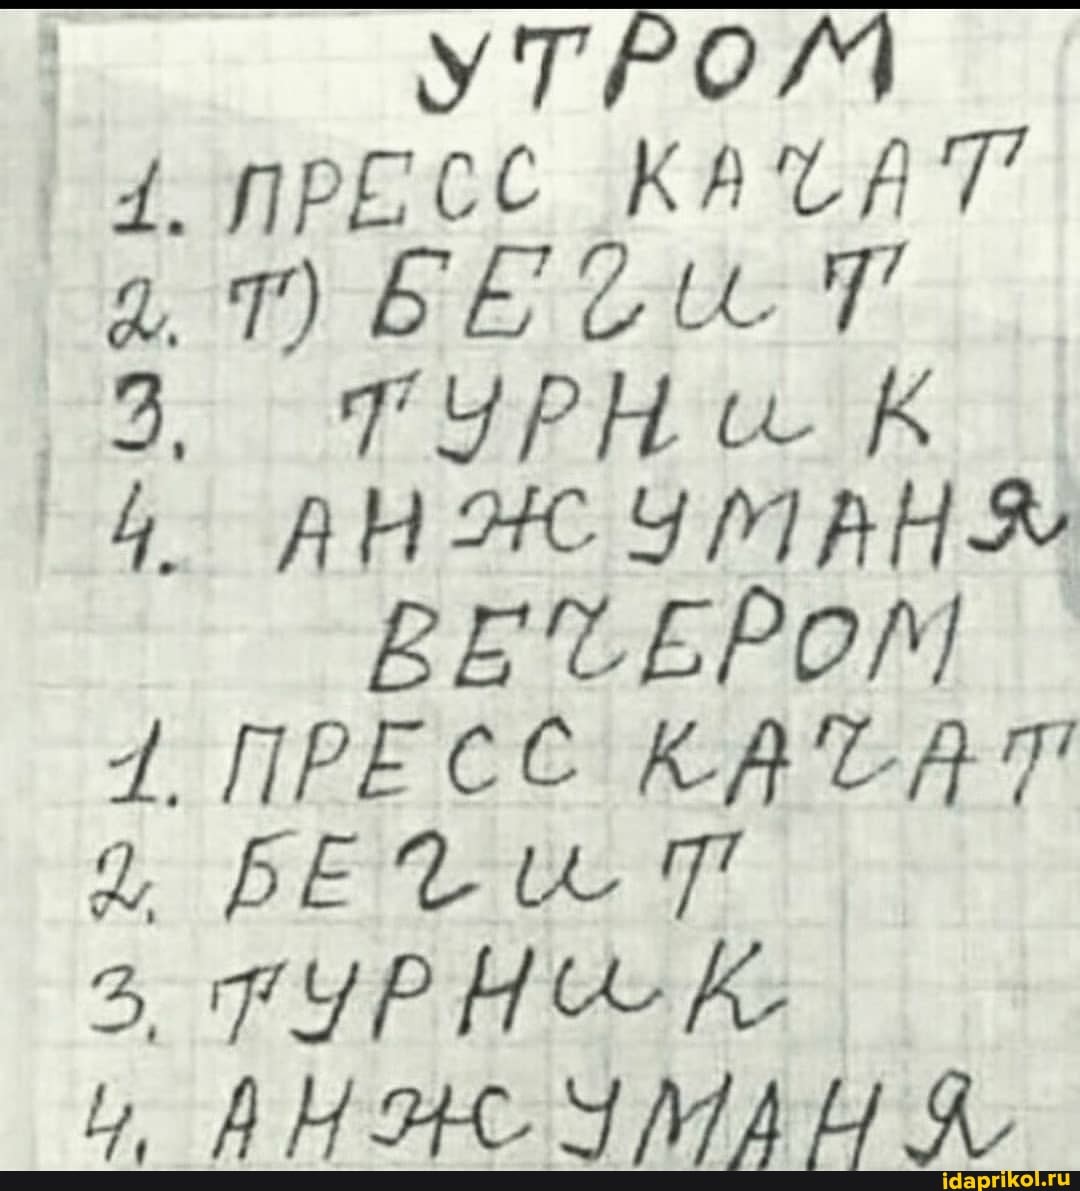 УТРОМ
1. ПРЕСС КАЧАТ
2. Т) БЕГИТ
3. ТУРНИК
4. АНЖУМАНЯ
ВЕЧЕРОМ
1. ПРЕСС КАЧАТ
2. БЕГИТ
3. ТУРНИК
4. АНЖУМАНЯ
idaprikol.ru